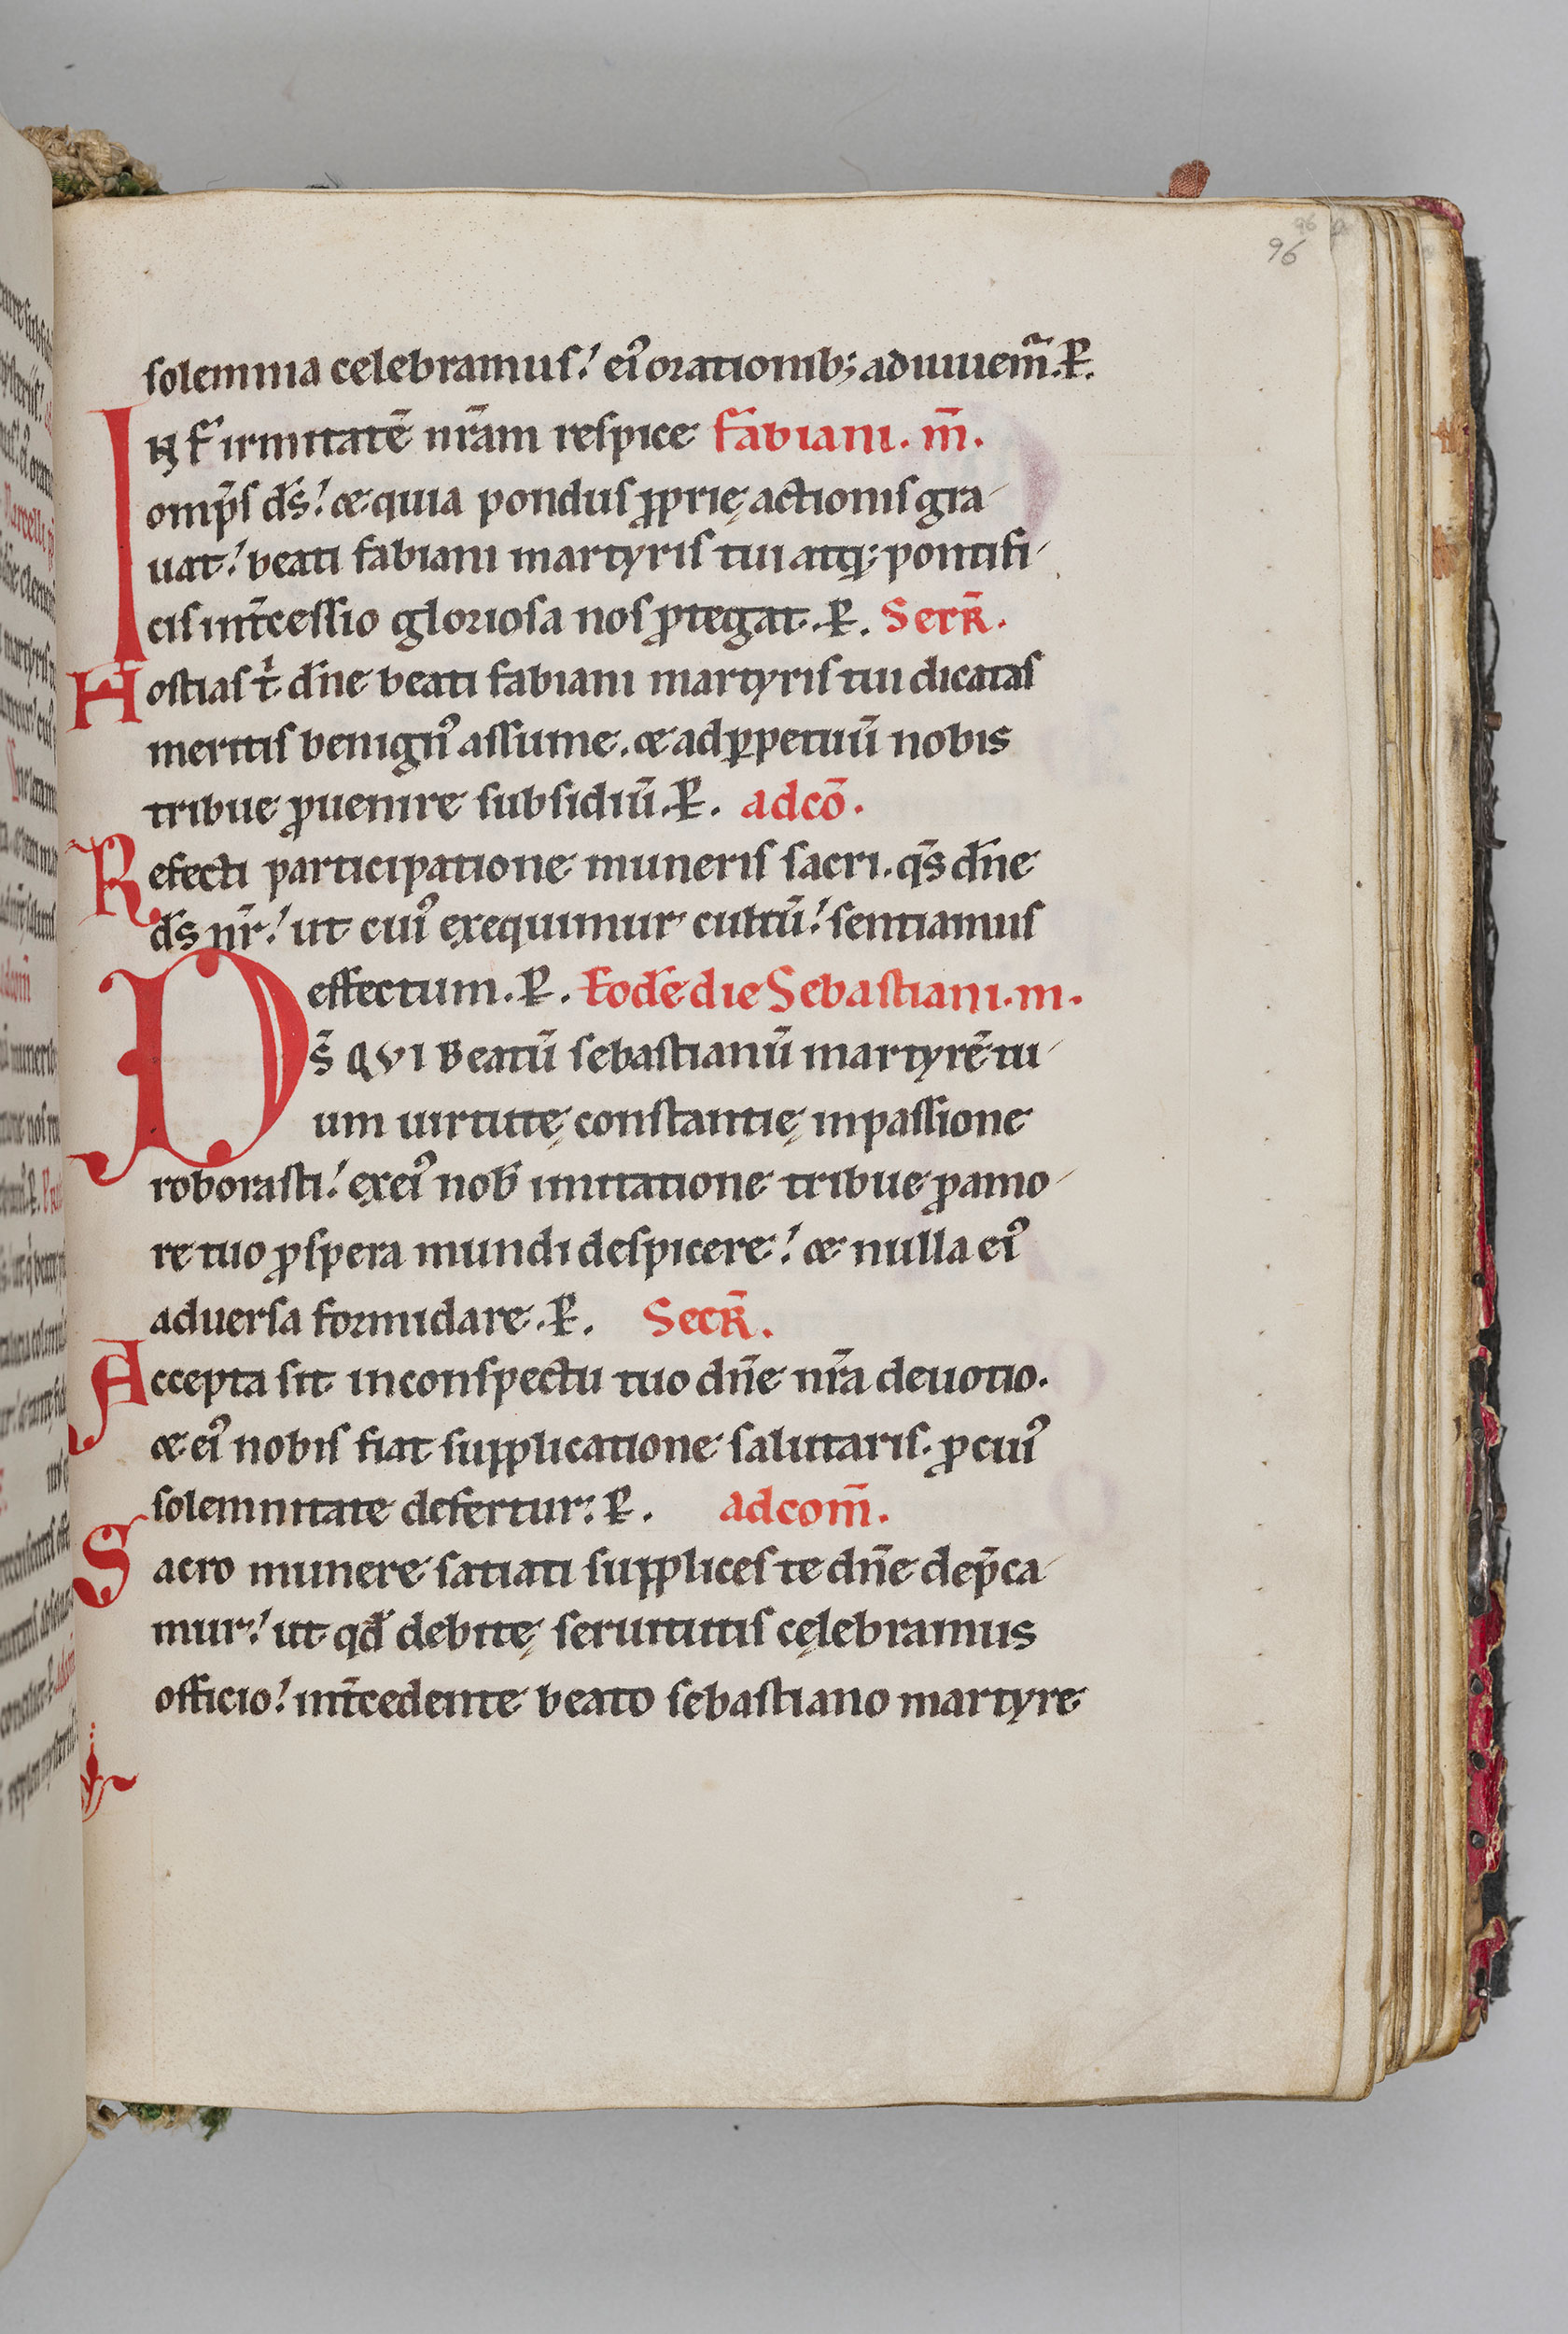 96
solemnia celebramus! ei᾽ orationib; adiuuem̃. P̶.
INFirmitatē nr̄am respice Fabiani. m̄.
omp̄s ds̄! & quia pondus ꝓprię actionis gra-
uat! beati fabiani martyris tui atq; pontifi-
cis int̄cessio gloriosa nos ꝓtegat. P̶. Secr̄.
Hostias t᷑ dn̄e beati fabiani martyris tui dicatas
meritis benign᾽ assume. & ad ꝑpetuū nobis
tribue ꝓuenire subsidiū. P̶. adcō.
Refecti participatione muneris sacri. qs̄ dn̄e
ds̄ nr̄! ut cui᾽ exequimur cultū! sentiamus
effectum. P̶. Eodē die Sebastiani. m.
Ds̄ QVI Beatū sebastianū martyrē tu-
um uirtute constantię in passione
roborasti! ex ei᾽ nob̄ imitatione tribue ꝓ amo-
re tuo ꝓspera mundi despicere! & nulla ei᾽
aduersa formidare. P̶. Secr̄.
Accepta sit in conspectu tuo dn̄e nr̄a deuotio.
& ei᾽ nobis fiat supplicatione salutaris. ꝓ cui᾽
solemnitate defertur: P̶. adcom̄.
Sacro munere satiati supplices te dn̄e dep̄ca-
mur! ut qd̄ debitę seruitutis cęlebramus
officio! int̄cedente beato sebastiano martyre